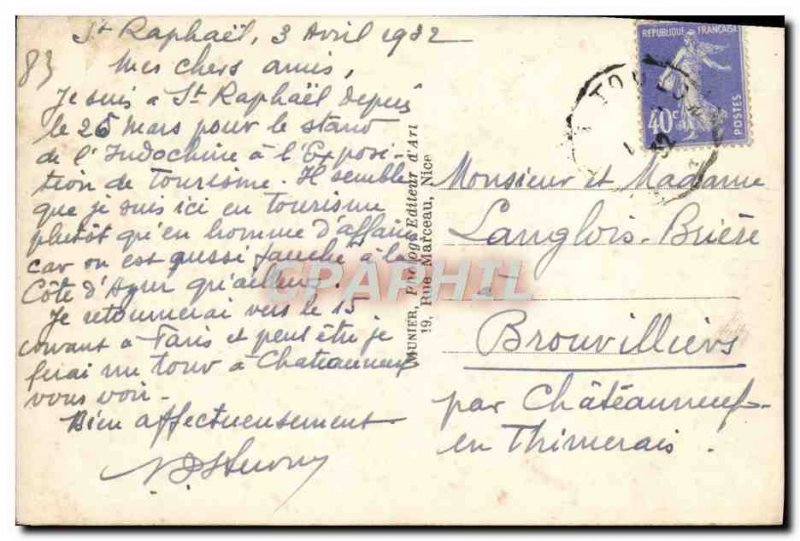 St Raphaël, 3 Avril 1932
83
Mes chers amis,
Je suis à St Raphaël depuis
le 26 Mars pour le stand
de l'Indochine à l'Exposi-
tion de tourisme. Il semble
que je suis ici en tourisme
plutôt qu'en homme d'affaires
car on est aussi fauché à la
Côte d'Azur qu'ailleurs.
Je retournerai vers le 15
courant à Paris et peut être je
ferai un tour à Chateauneuf
vous voir.
Bien affectueusement
MUNIER, Photogr. Editeur d'Art
19, Rue Marceau, Nice
REPUBLIQUE FRANÇAISE
40c
POSTES
TOULON
32
Monsieur et Madame
Langlois-Brière
à
Brouvilliers
par Châteauneuf-
en Thimerais.
CPARPHIL